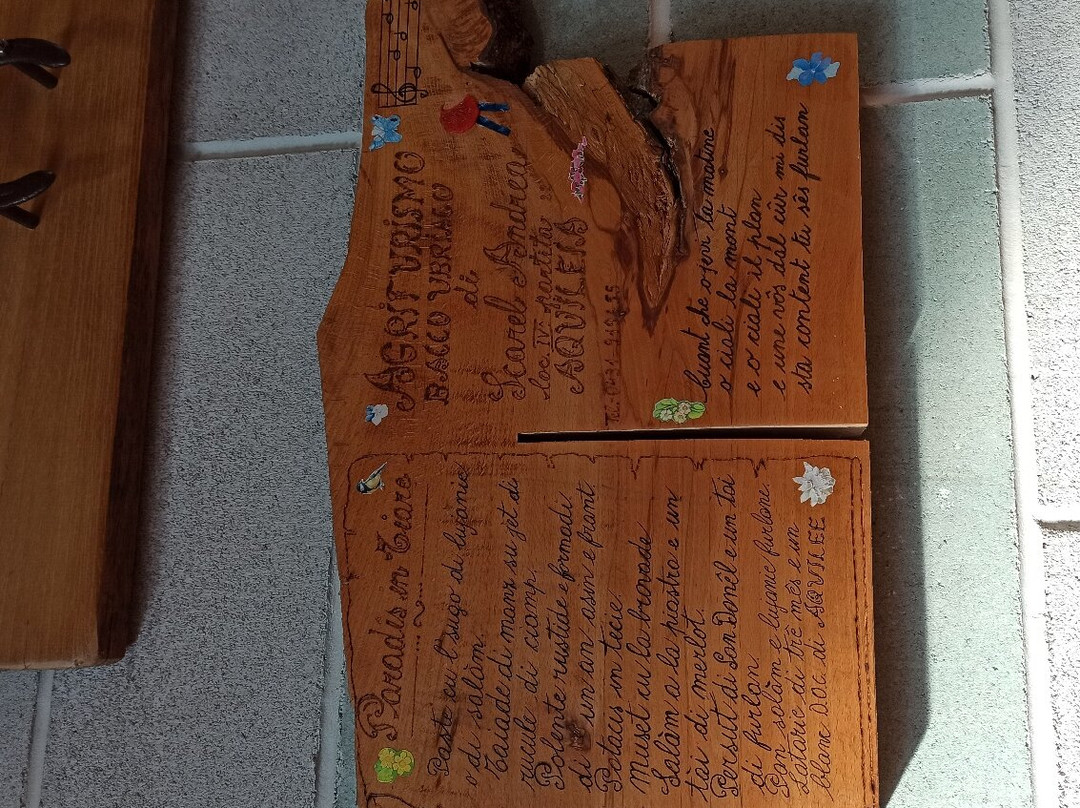 AGRITURISMO
BACCO UBRIACO
di
Scarel Andrea
loc. IV partita
AQUILEIA
Cuant che o jevi la matine
o ciali la mont
e o ciali il plan
e une vôs dal cûr mi dis
sta content tu sês furlan
Paradîs in Tiare
Paste cu l'sugo di lujanie
o di salàm.
Taiade di manz su jet di
rucule di ciamp.
Polente rustide e formadi
di un an, assin e frant.
Patacis in tecie
Muset cu la bronade
Salàm a la piastre e un
tai di merlot.
Persut di San Denêl e un tai
di furlan
Pan, salàm e lujanie furlane.
Lataric di trê mês e un
blanc D.O.C. di AQUILEE